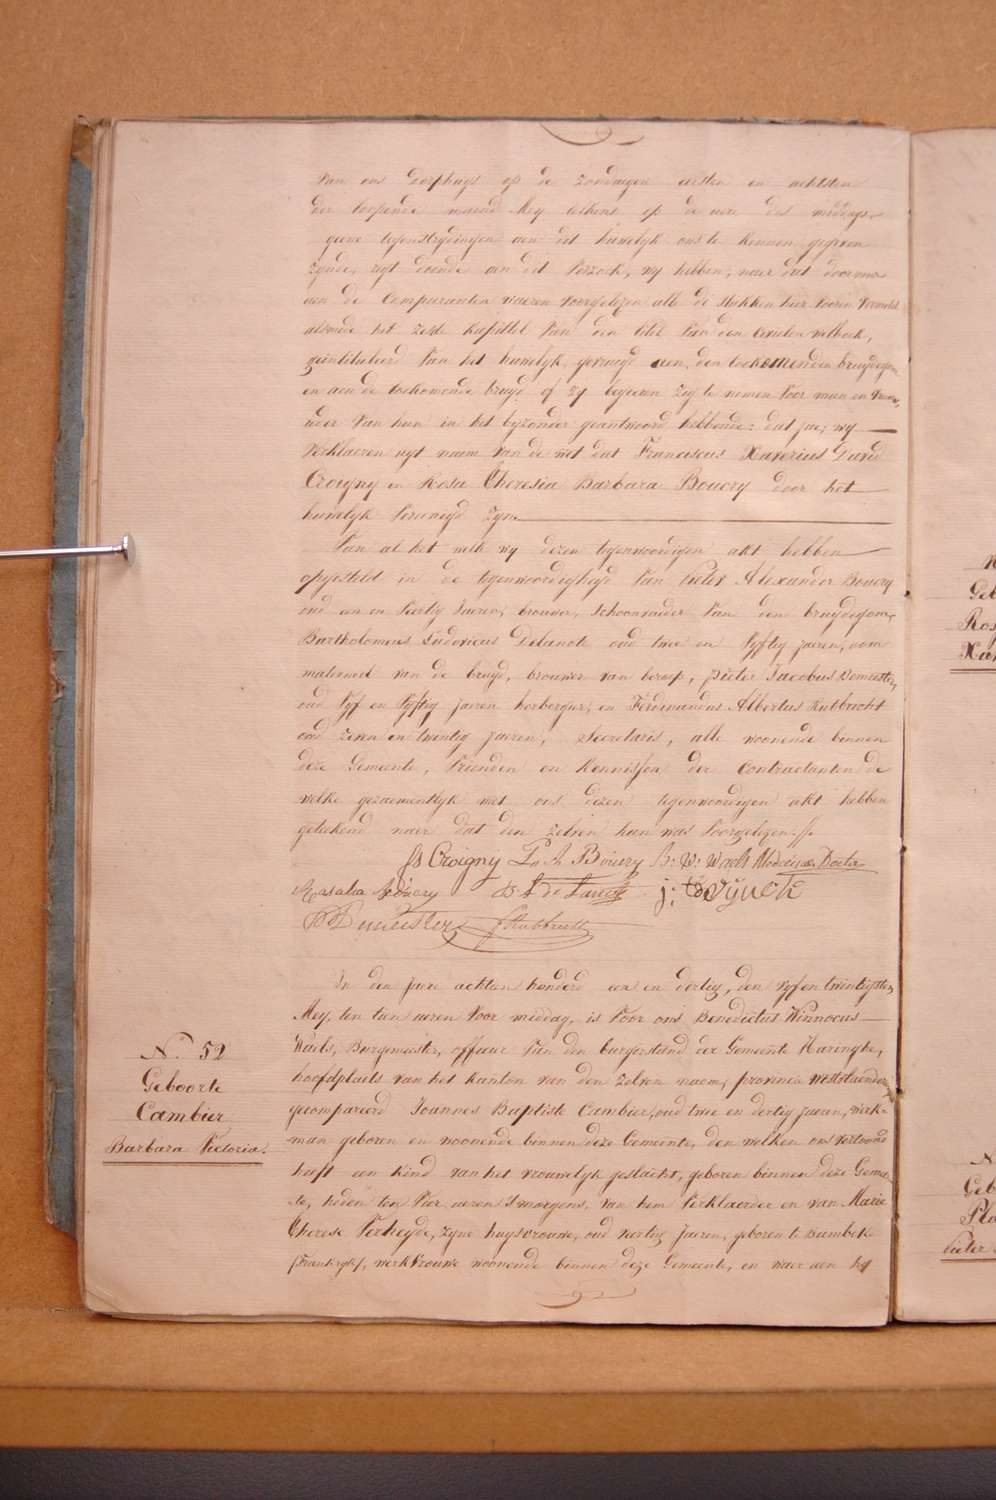 van ons dorphuys op de zondagen eersten en achtsten
der loopende maand Mey telkens op de uere des middags
geene tegenstrydingen aen dit huwelyk ons te kennen gegeven
zynde, regt doende aen dit verzoek, wy hebben, naer dat door ons
aen de Comparanten waeren voorgelezen alle de stukken hier vooren vermeld
alsmede het zesde kapittel van den titel van den Civielen wetboek,
geintituleerd van het huwelyk, gevraegd aen den toekomenden bruydegom
en aen de toekomende bruyd of zy begeeren zig te nemen voor man en vrouw,
ieder van hun in het byzonder geantwoord hebbende: dat jae; wy
verklaeren uyt naem van de wet dat Franciscus Xaverius David
Croigny en Rosa Theresia Barbara Boucry door het
huwelyk vereenigd zyn.
Van al het welk wy dezen tegenwoordigen akt hebben
opgesteld in de tegenwoordigheyd van Pieter Alexander Boucry
oud een en veertig Jaeren, brouwer, schoonvader van den bruydegom,
Bartholomeus Ludovicus Delanote oud twee en vyftig jaeren, oom
materneel van de bruyd, brouwer van beroep, pieter Jacobus Demeester,
oud vyf en vyftig jaeren herbergier, en Ferdinandus Albertus Rubbrecht
oud zeven en twintig jaeren, Secretaris, alle woonende binnen
deze Gemeente, vrienden en kennissen der Contractanten de
welke gezaementlyk met ons dezen tegenwoordigen akt hebben
geteekend naer dat den zelven hun was voorgelezen.
Croigny P. A. Boucry B: W: Waels Medecinae Doctor
Rosalia Boucry
Demeester
In den jaere achtien honderd een en dertig, den vyf en twintigsten
Mey, ten tien ueren voor middag, is voor ons Benedictus Winnocus
Waels, Burgemeester, officier van den burgerstand der Gemeente Haringhe,
hoofdplaets van het kanton van den zelven naem, provincie Westvlaenderen,
gecompareerd Joannes Baptiste Cambier, oud twee en dertig jaeren, werk-
man geboren en woonende binnen deze Gemeente, den welken ons vertoond
heeft een kind van het vrouwelyk geslacht, geboren binnen deze Gemeen-
te, heden ten vier ueren s'morgens, van hem verklaerder en van Marie
Therese Verheyde, zyne huysvrouwe, oud veertig Jaeren, geboren te Bambek-
(Frankryk), werkvrouwe woonende binnen deze Gemeente, en waer aen hy
N.º 52
Geboorte
Cambier
Barbara Victoria.